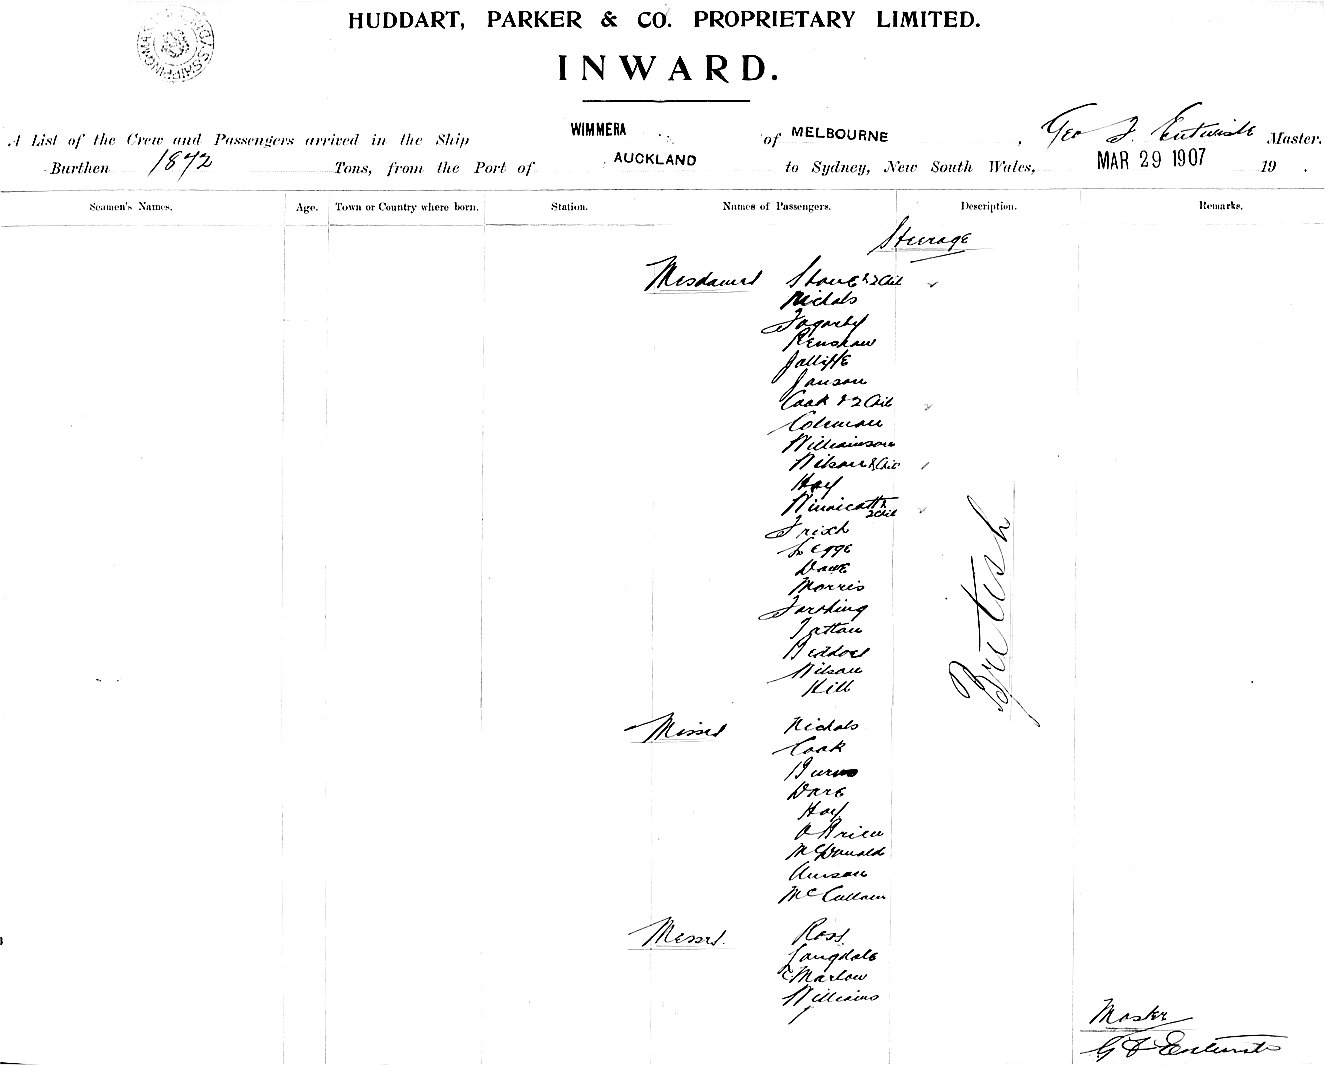 HUDDART, PARKER & CO. PROPRIETARY LIMITED.
INWARD.
A List of the Crew and Passengers arrived in the Ship WIMMERA of MELBOURNE, Geo F. Entwisle Master.
Burthen 1872 Tons, from the Port of AUCKLAND to Sydney, New South Wales, MAR 29 1907 19 .
Seamen's Names. Age. Town or Country where born. Station. Names of Passengers. Description. Remarks.
Steerage
Mesdames & 2 Chil
Nichols
Fogarty
Renshaw
Jolliffe
Janson
Cook & 2 Chil
Coleman
Williamson
Wilson & Chil
Hay
2 Chil
Frith
Legge
Dawe
Morris
Farthing
Tattan
Beddoes
Wilson
Hill
British
Misses Nichols
Cook
Burns
Dare
Hay
O'Brien
McDonald
McCallum
Messrs. Ross
Langdale
Marlow
Williams
Master
G F Entwisle